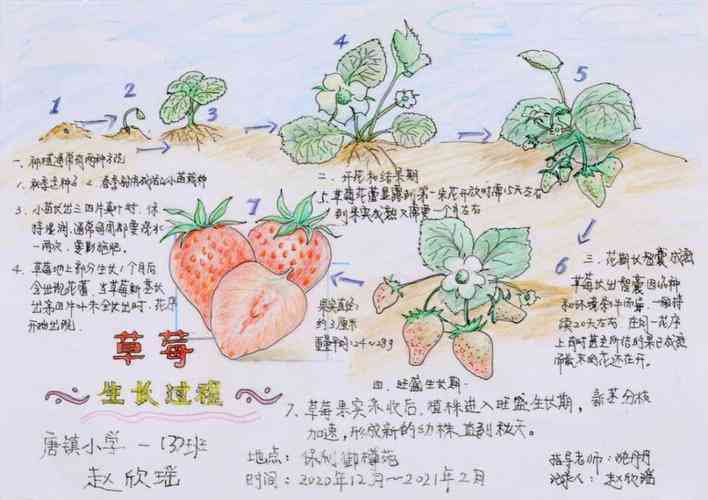 1
2
3
4
5
6
7
一、种植通常有两种方法
1、秋季选种子 2、春季
3、小苗长出三四片真叶时,保
持湿润,通常每周都要浇水
一两次,要施肥。
4、草莓地上部分生长1个月后
会出现花蕾,当草莓新茎长
出第四片叶未全长出时,花序
开始出现。
二、开花和结果期
5、草莓花蕾显露到第一朵花开放时需15天左右
到果实成熟又需要一个月左右
三、花期长
草莓花期长
和环境条件而异,一般持
续20天左右,在同一花序
上有时甚至所结的果已成熟
而最末的花还在开。
果实直径:
约3厘米
重量平均:24~28g
四、旺盛生长期:
7、草莓果实采收后,植株进入旺盛生长期,新茎分枝
加速,形成新的幼株,直到秋天。
草莓
生长过程
唐镇小学一(3)班
赵欣瑶
地点:保利御樽苑
时间:2020年12月~2021年2月
指导老师:
记录人:赵欣瑶